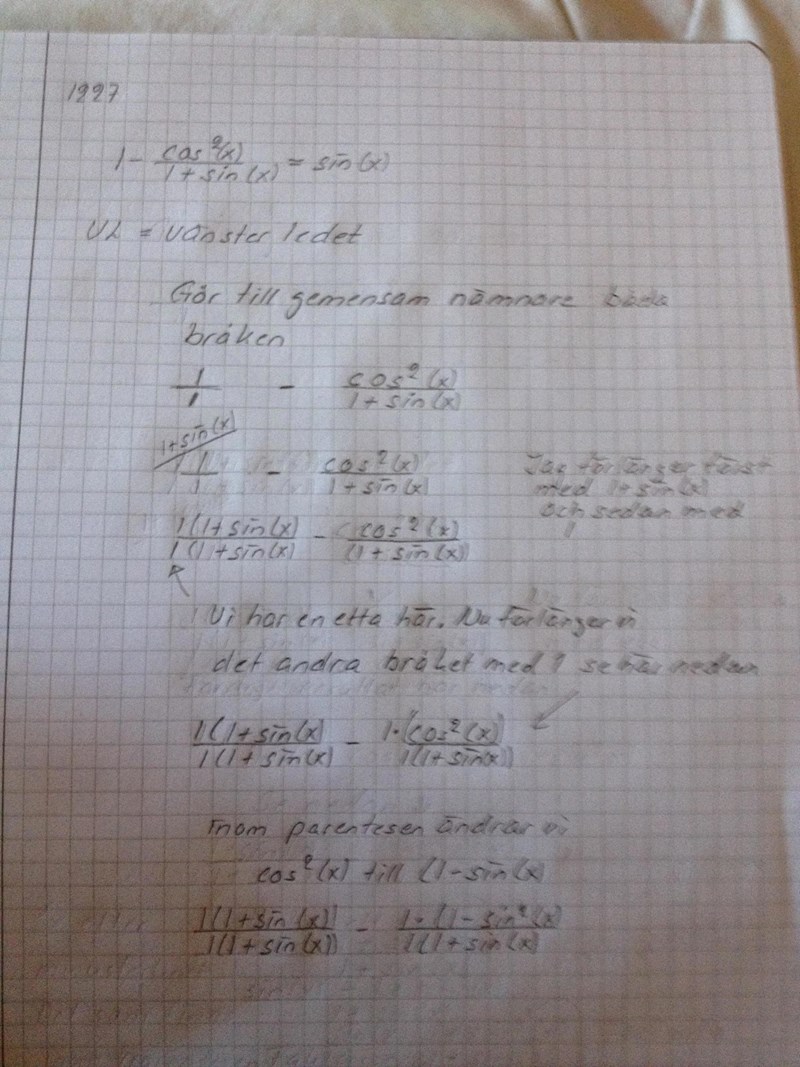 1227
1 - cos²(x) / 1 + sin(x) = sin(x)
VL = vänster ledet
Gör till gemensam nämnare båda
bråken
1/1 - cos²(x) / 1 + sin(x)
1+sin(x)
1/1 - cos²(x) / 1 + sin(x)
Jag förlänger först
med 1+sin(x)
och sedan med
1
1(1+sin(x) / 1(1+sin(x) - cos²(x) / (1+sin(x))
Vi har en etta här. Nu förlänger vi
det andra bråket med 1 se här nedan
1(1+sin(x) / 1(1+sin(x) - 1·(cos²(x)) / 1(1+sin(x))
Inom parentesen ändrar vi
cos²(x) till (1-sin(x)
1(1+sin(x)) / 1(1+sin(x)) - 1·(1-sin²(x) / 1(1+sin(x)